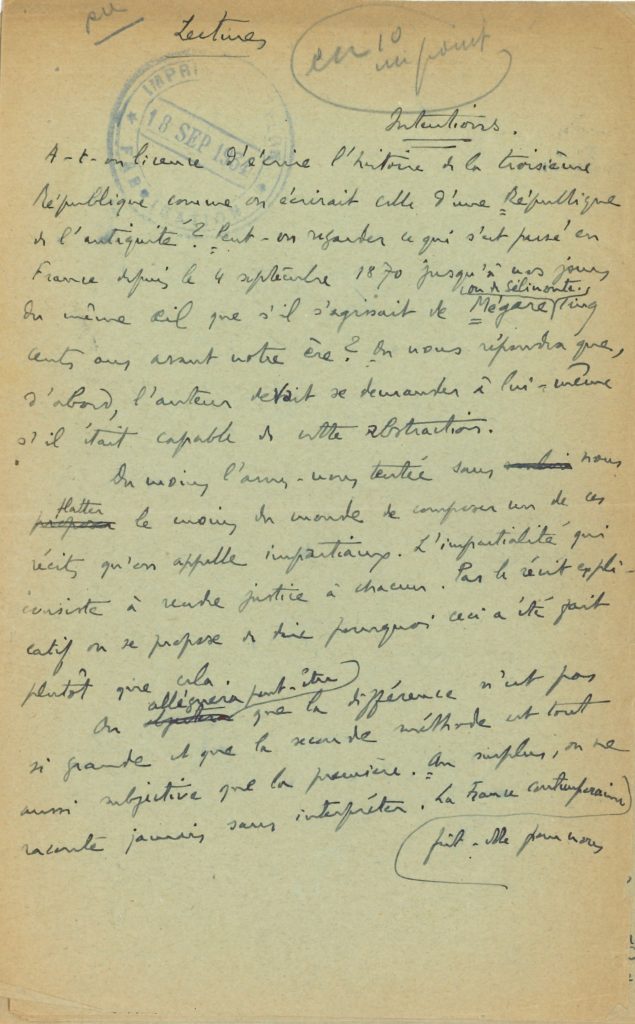 Lectures
en 10
un point
IMPRI
18 SEP 1934
Intentions.
A-t-on licence d'écrire l'histoire de la troisième
République comme on écrirait celle d'une République
de l'antiquité ? Peut-on regarder ce qui s'est passé en
France depuis le 4 septembre 1870 jusqu'à nos jours
ou de Sélinonte
du même œil que s'il s'agissait de Mégare cinq
cents ans avant notre ère ? On nous répondra que,
d'abord, l'auteur devait se demander à lui-même
s'il était capable de cette abstraction.
Du moins l'avons-nous tentée sans nous
flatter
proposer le moins du monde de composer un de ces
récits qu'on appelle impartiaux. L'impartialité qui
consiste à rendre justice à chacun. Par le récit expli-
catif on se propose de dire pourquoi ceci a été fait
plutôt que cela.
alléguera peut-être
On que la différence n'est pas
si grande et que la seconde méthode est tout
aussi subjective que la première. Au surplus, on ne
raconte jamais sans interpréter. La France contemporaine
fût-elle pour nous